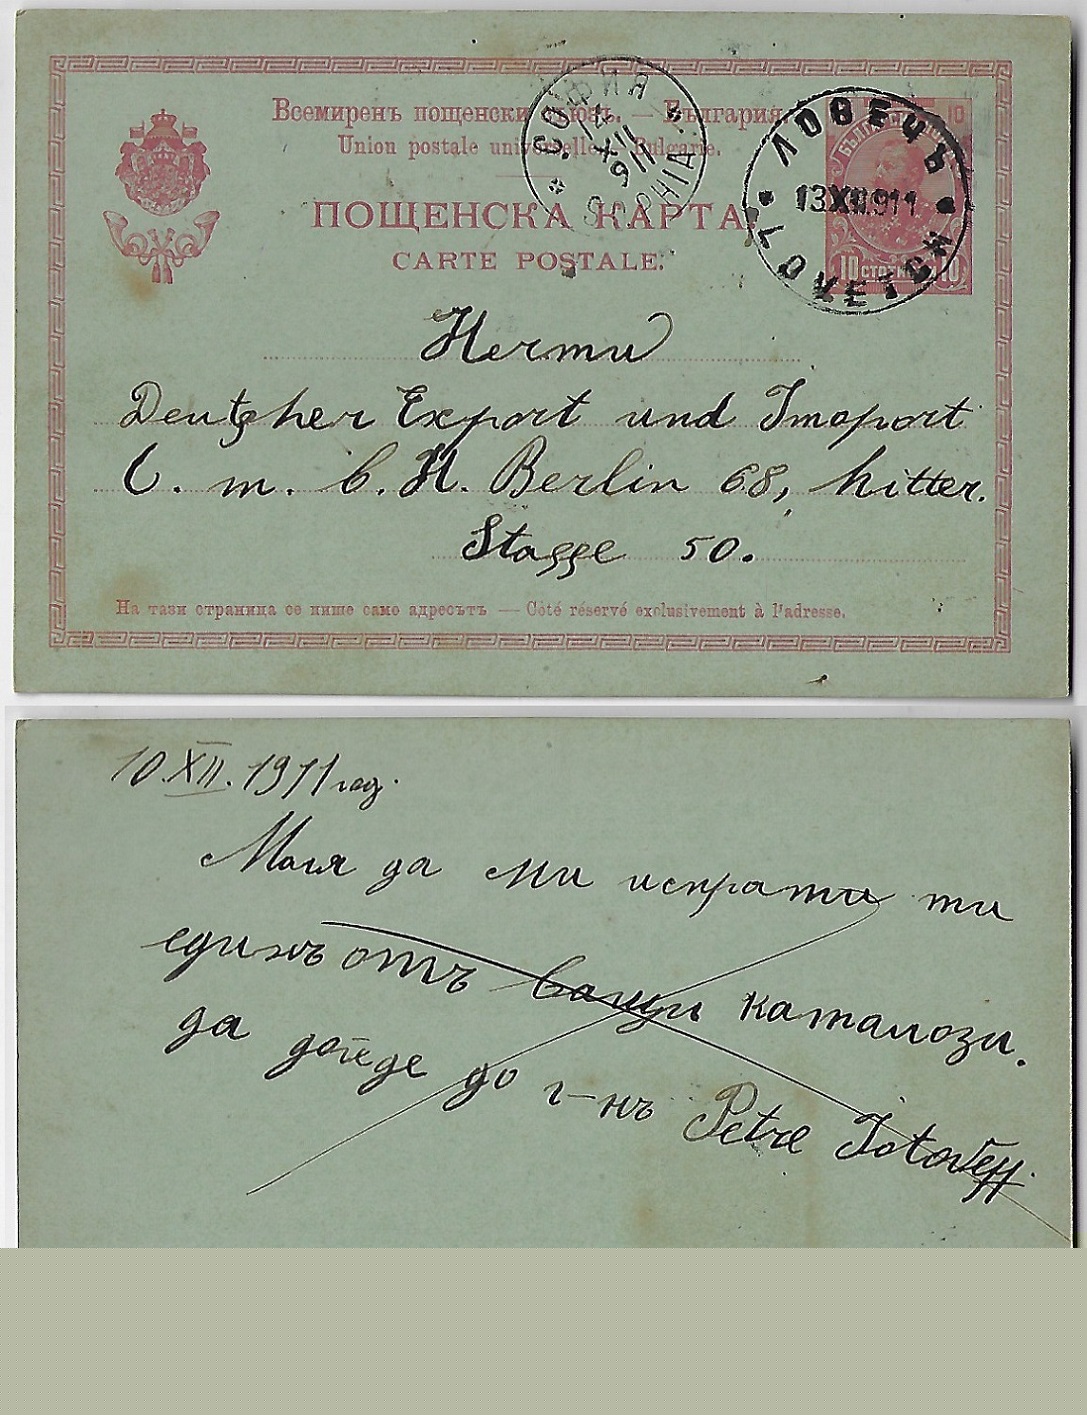 Всемиренъ пощенски съюзъ. — България.
Union postale universelle. — Bulgarie.
ПОЩЕНСКА КАРТА.
CARTE POSTALE.
СОФИЯ
14 XII 911
SOPHIA
ЛОВЕЧЪ
13 XII.911
LOVETCH
10
10 СТОТИНКИ 10
Herrnu
Deutscher Export und Imoport
C. m. b. H. Berlin 68, hitter.
Stasse 50.
На тази страница се пише само адресътъ — Côté réservé exclusivement à l'adresse.
10.XII.1911 год.
Моля да ми испрати ти
единъ отъ ваши каталози.
да дойде до г-нъ Petre Totoveff.